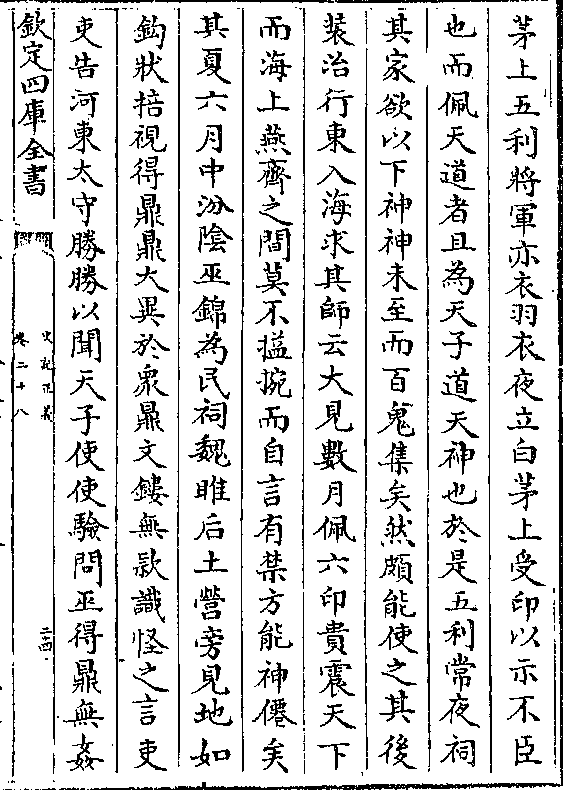 茅上五利將軍亦衣羽衣夜立白茅上受印以示不臣
也而佩天道者且為天子道天神也於是五利常夜祠
其家欲以下神神未至而百鬼集矣然頗能使之其後
裝治行東入海求其師云大見數月佩六印貴震天下
而海上燕齊之間莫不搤捥而自言有禁方能神僊矣
其夏六月中汾陰巫錦為民祠魏脽后土營旁見地如
鈎狀掊視得鼎鼎大異於衆鼎文鏤無款識怪之言吏
吏告河東太守勝勝以聞天子使使驗問巫得鼎無姦
欽定四庫全書
史記正義
卷二十八
二四